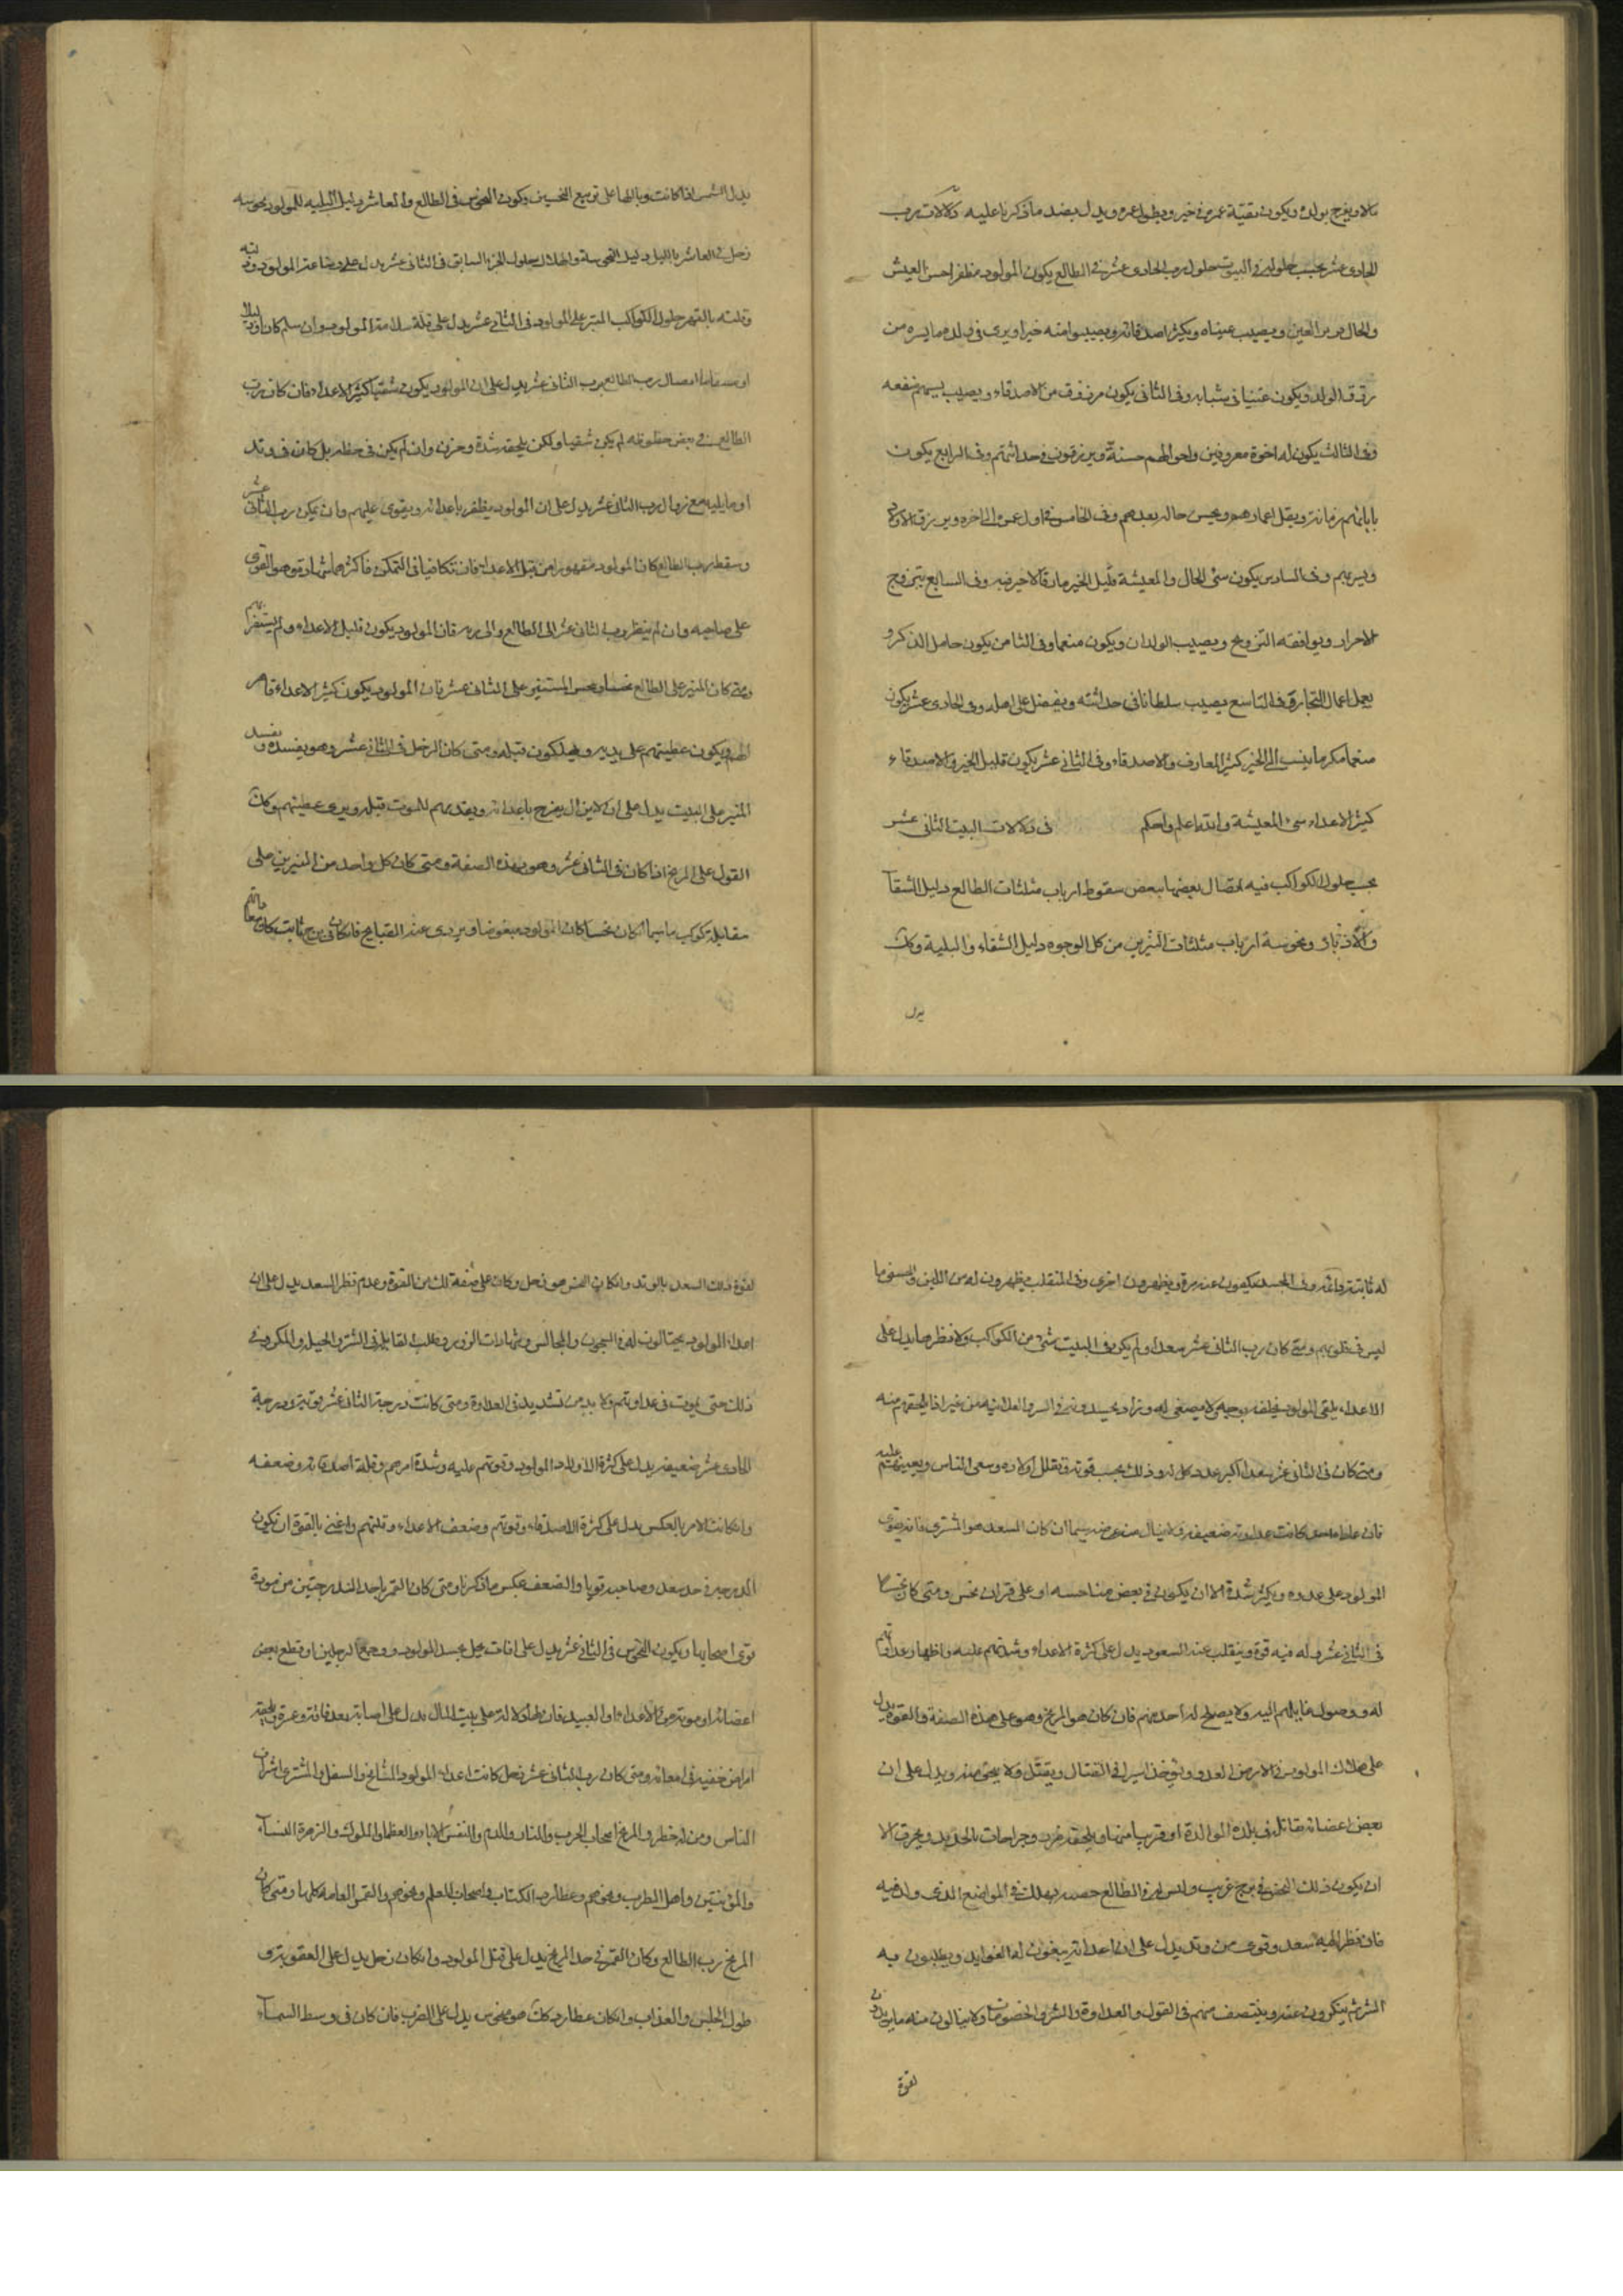 مالا ويفرح بولده ويكون بقية عمره في خير ويطول عمره ويدل بضد ما ذكرنا عليه دلالات رب
الحادي عشر بحسب حلوله في البيوت حلول رب الحادي عشر في الطالع يكون المولود مظفرا حسن العيش
والحال قرير العين ويصيب عيناه ويكثر اصدقائه ويصيبوا منه خيرا ويرى في ولده ما يسره من
رزق الولد ويكون غنيا في شبابه وفي الثاني يكون مرزوق من الاصدقاء ويصيب بسببهم منفعه
وفي الثالث يكون له اخوة معروفين واحوالهم حسنة ويرزقون في حداثتهم وفي الرابع يكون
بابائهم زمانة ويقل اعمارهم ويحسن حاله بعدهم وفي الخامس في اول عمره الى اخره ويرزق الاولاد
ويسر بهم وفي السادس يكون سئ الحال والمعيشة قليل الخير مارقا لا خير فيه وفي السابع يتزوج
الاحرار ويوافقه التزويج ويصيب الولدان ويكون منعما وفي الثامن يكون خامل الذكر و
يعمل اعمال التجارة وفي التاسع يصيب سلطانا في حداثته ويفضل على اهله وفي الحادي عشر يكون
منعما مكرما ينسب الى الخير كثير المعارف والاصدقاء وفي الثاني عشر يكون قليل الخير والاصدقاء
كثير الاعداء سئ المعيشة والله اعلم واحكم في دلالات البيت الثاني عشر
بحسب حلول الكواكب فيه اتصال بعضها ببعض سقوط ارباب مثلثات الطالع دليل الشقآ
والادبار ونحوسة ارباب مثلثات النيرين من كل الوجوه دليل الشقاء والبلية وكان
يدل
يدل الشمس اذا كانت وبالها على تربيع النحسين ويكون النحوس في الطالع والعاشر دليل البليه للمولود نحوسه
زحل في العاشر بالليل دليل النحوسة والهلال حلول الجزء السابق في الثاني عشر يدل على وضاعة المولود
وقلته بالقهر حلول الكواكب المتر على المولود في الثاني عشر يدل على قلة سلامة المولود وان سلم كان
اتصال رب الطالع برب الثاني عشر يدل على ان المولود يكون شقيا كثير الاعداء فان كان رب
الطالع في بعض حظوظه لم يكن شقيا ولكن يلحقه شدة وحزن وان لم يكن في حظه بل كان في وتد
او ما يليه مع زوال رب الثاني عشر يدل على ان المولود يظفر باعدائه ويقوى عليهم وان يكن رب الثاني عشر
وسقط رب الطالع كان المولود مقهورا من قبل الاعداء فان تكافيا في التمكن فاكثرهما شهادة هو القوي
على صاحبه وان لم ينظر رب الثاني عشر الى الطالع والى ربه فان المولود يكون قليل الاعداء
ومتى كان المنير على الطالع نحسا ونحس المستنير على الثاني عشر فان المولود يكون كثير الاعداء
لهم ويكون عطيتهم على يديه ويهلكون قبله ومتى كان الزحل في الثاني عشر وهو يفسده
المنير على البيت يدل على ان لا يزال يفرح باعدائه ويقدمهم للموت قبله ويرى عطيتهم وكان
القول على المريخ اذا كان في الثاني عشر وهو بهذه الصفة ومتى كان كل واحد من المنيرين على
مقابلة كوكب ما سيما ان كان نحسا كان المولود مبغوضا ويردى عند القبايح فان كان في برج ثابت كان
له ثابتة دائمة وفي المجسد يكيدون عنده مرة ويظهرون اخرى وفي المنقلب يظهرون له من اللين والحسنى ما
ليس في قلوبهم ومتى كان رب الثاني عشر سعدا ولم يكن في البيت شئ من الكواكب ولا نظرها يدل على
ان الاعداء يلقى المولود
ومتى كان في الثاني عشر سعدا اكبر عدد كل له وذلك بحسب قوته ويقلل اولاده وسعى الناس ويعينهم عليه
كانت عداوته ضعيفه ولا ينال من عرضه سيما ان كان السعد هو المشتري فانه يقوى
المولود على عدوه ويكثر شدة الا ان يكون في بعض مناحسه او على قران نحس ومتى كان نحسا
في الثاني عشر وله فيه قوة وينقلب عند السعود يدل على كثرة الاعداء وشدتهم عليه واظهار عداوتهم
له ووصول غايلتهم اليه ولا يصلح له احد منهم فان كان هو المريخ وهو على هذه الصفة والقوة يدل
على هلاك المولود في الارض العدو ويؤخذ اسيرا في القتال ويقتل ولا ينجى منه ويدل على ان
بعض اعضائه في بلدة الموالدة او قريبا منها ويلحقه ضرب وجراحات بالحديد ويحرق الا
ان يكون ذلك النحس في برج غريب وليس له في الطالع حصه فيهلك في المواضع الذي ولد فيه
فان نظر اليه سعد وقوى من وتد يدل على ان اعدائه يبغون له الغوايل ويطلبون به
الشر ثم ينكرون عنه وينتصف منهم في القول والعداوة والشر والخصومات ولا ينالون منه ما يريدون
لقوة
لقوة ذلك السعد بالوتد وان كان النحس هو زحل وكان على صفة تلك من القوة وعدم نظر السعد يدل على ان
اعداء المولود يحتالون له في السجون والمجالس وشهادات الزور في طلب لقائه في الشر والحيل والمكروه في
ذلك حتى يموت في عداوتهم ولا بد من تشديد في العداوة ومتى كانت درجة الثاني عشر قوية ودرجة
الحادي عشر ضعيفه يدل على كثرة الاولاد المولود وقوتهم عليه وشدة امرهم وقلة اصدقائه وضعفه
وان كانت الامر بالعكس يدل على كثرة الاصدقاء وقوتهم وضعف الاعداء وقلتهم واعني بالقوة ان يكون
الدرجه في حد سعد وصاحبه قويا والضعف عكس ما ذكرنا ومتى كان القمر باحد الدرجتين من مودة
قوى اصحابها ويكون النحوس في الثاني عشر يدل على افات يحل بجسد المولود ووجع الرجلين او قطع بعض
اعضائه او موته من الاعداء او العبيد فان لها دلالة على بيت المال يدل على اصابته بعد فاقة وعسرة ويلحقه
امراض خفيه في امعائه ومتى كان رب الثاني عشر زحل كانت اعداء المولود المشايخ والسفل والمشتري اشراف
الناس ومن له خطر والمريخ اصحاب الحرب والنار والدم والشمس الاباء والعظماء والملوك والزهرة النسآء
والمؤنثين واهل الطرب ونحوهم وعطارد الكتاب واصحاب العلم ونحوهم والقمر العامه كلها ومتى كان
المريخ رب الطالع وكان القمر في حد المريخ يدل على قتل المولود وان كان زحل يدل على العقوبة في
طول الحبس والعذاب وان كان عطارد وكان هو منحوس يدل على الضرب فان كان في وسط السمآء